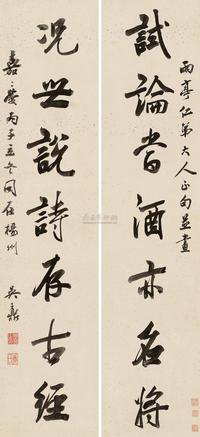 雨亭仁弟大人正句並書
試論酒亦名將
況世說詩存古經
嘉慶丙子立冬同在楊州
吳鼒